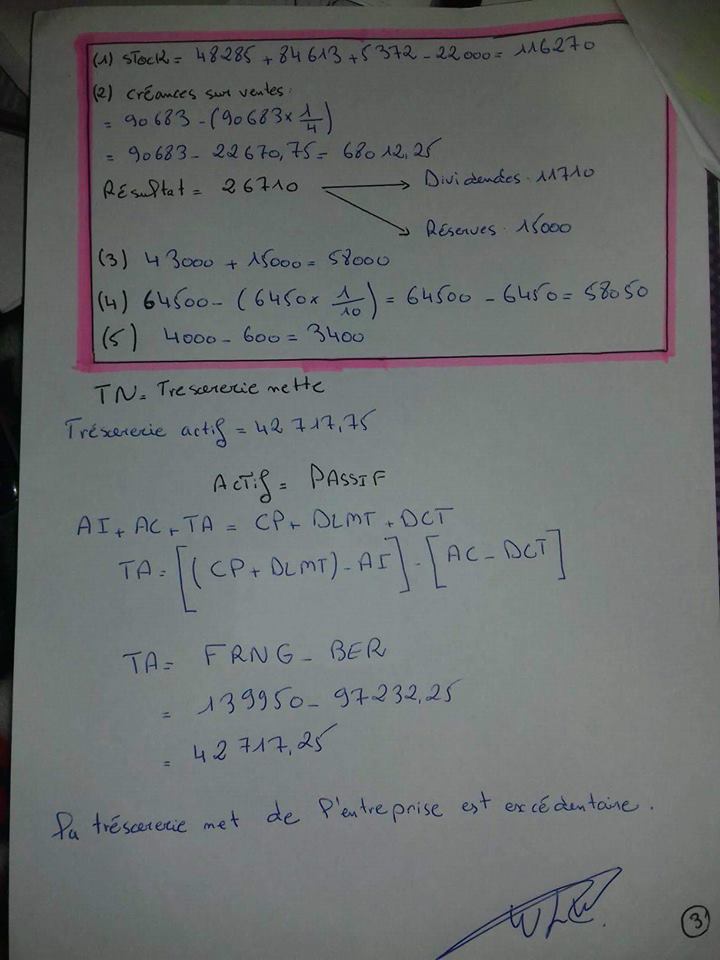 (1) Stock = 48285 + 84613 + 5372 - 22000 = 116270
(2) créances sur ventes:
= 90683 - (90683 x 1/4)
= 90683 - 22670,75 = 68012,25
Résultat = 26710 → Dividendes. 11710
→ Réserves. 15000
(3) 43000 + 15000 = 58000
(4) 64500 - (6450 x 1/10) = 64500 - 6450 = 58050
(5) 4000 - 600 = 3400
TN = Trescrerie nette
Tréscrerie actif = 42 717,75
Actif = PASSIF
AI + AC + TA = CP + DLMT + DCT
TA = [(CP + DLMT) - AI] - [AC - DCT]
TA = FRNG - BFR
= 139950 - 97232,25
= 42 717,25
la tréscrerie net de l'entreprise est excédentaire.
3